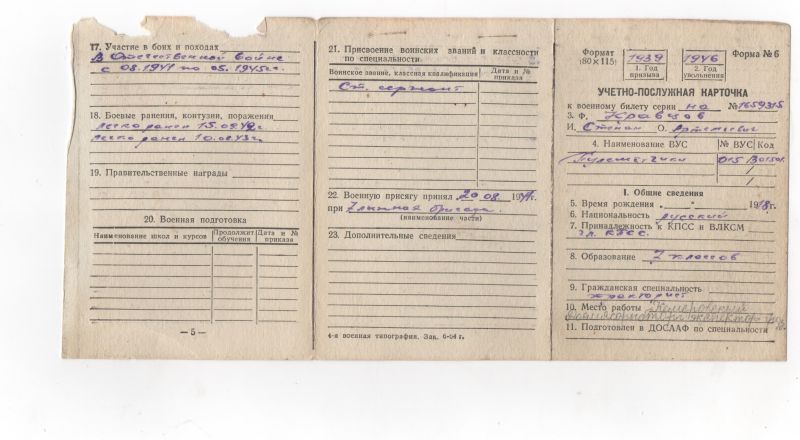 17. Участие в боях и походах
В Отечественной войне
с 08.1941 по 05.1945 г.
18. Боевые ранения, контузии, поражения
легко ранен 15.09.42 г.
легко ранен 10.09.43 г.
19. Правительственные награды
20. Военная подготовка
Наименование школ и курсов
Продолжит. обучения
Дата и № приказа
— 5 —
21. Присвоение воинских званий и классности
по специальности
Воинское звание, классная квалификация
Дата и № приказа
Ст. сержант
22. Военную присягу принял 20.08. 1941 г.
при 7 лыжная бригада
(наименование части)
23. Дополнительные сведения
4-я военная типография. Зак. 6-64 г.
Формат
(80×115)
1939
1. Год призыва
1946
2. Год увольнения
Форма № 6
УЧЕТНО-ПОСЛУЖНАЯ КАРТОЧКА
к военному билету серии на № 1659315
3. Ф. Кравцов
И. Степан О. Артемьевич
4. Наименование ВУС
№ ВУС
Код
015
I. Общие сведения
5. Время рождения . - " - 1918 г.
6. Национальность русский
7. Принадлежность к КПСС и ВЛКСМ
чл. КПСС.
8. Образование 7 классов
9. Гражданская специальность
тракторист
10. Место работы
11. Подготовлен в ДОСААФ по специальности